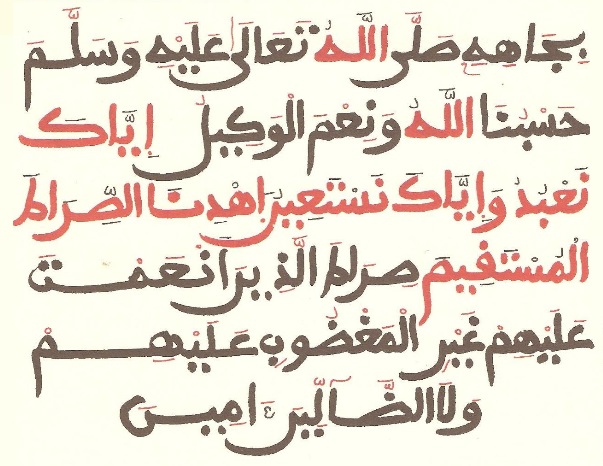 بِجَاهِهِ صَلَّى اللَّهُ تَعَالَى عَلَيْهِ وَسَلَّمَ
حَسْبُنَا اللَّهُ وَنِعْمَ الْوَكِيلُ إِيَّاكَ
نَعْبُدُ وَإِيَّاكَ نَسْتَعِينُ اِهْدِنَا الصِّرَاطَ
الْمُسْتَقِيمَ صِرَاطَ الَّذِينَ أَنْعَمْتَ
عَلَيْهِمْ غَيْرِ الْمَغْضُوبِ عَلَيْهِمْ
وَلَا الضَّآلِّينَ ءَامِينَ